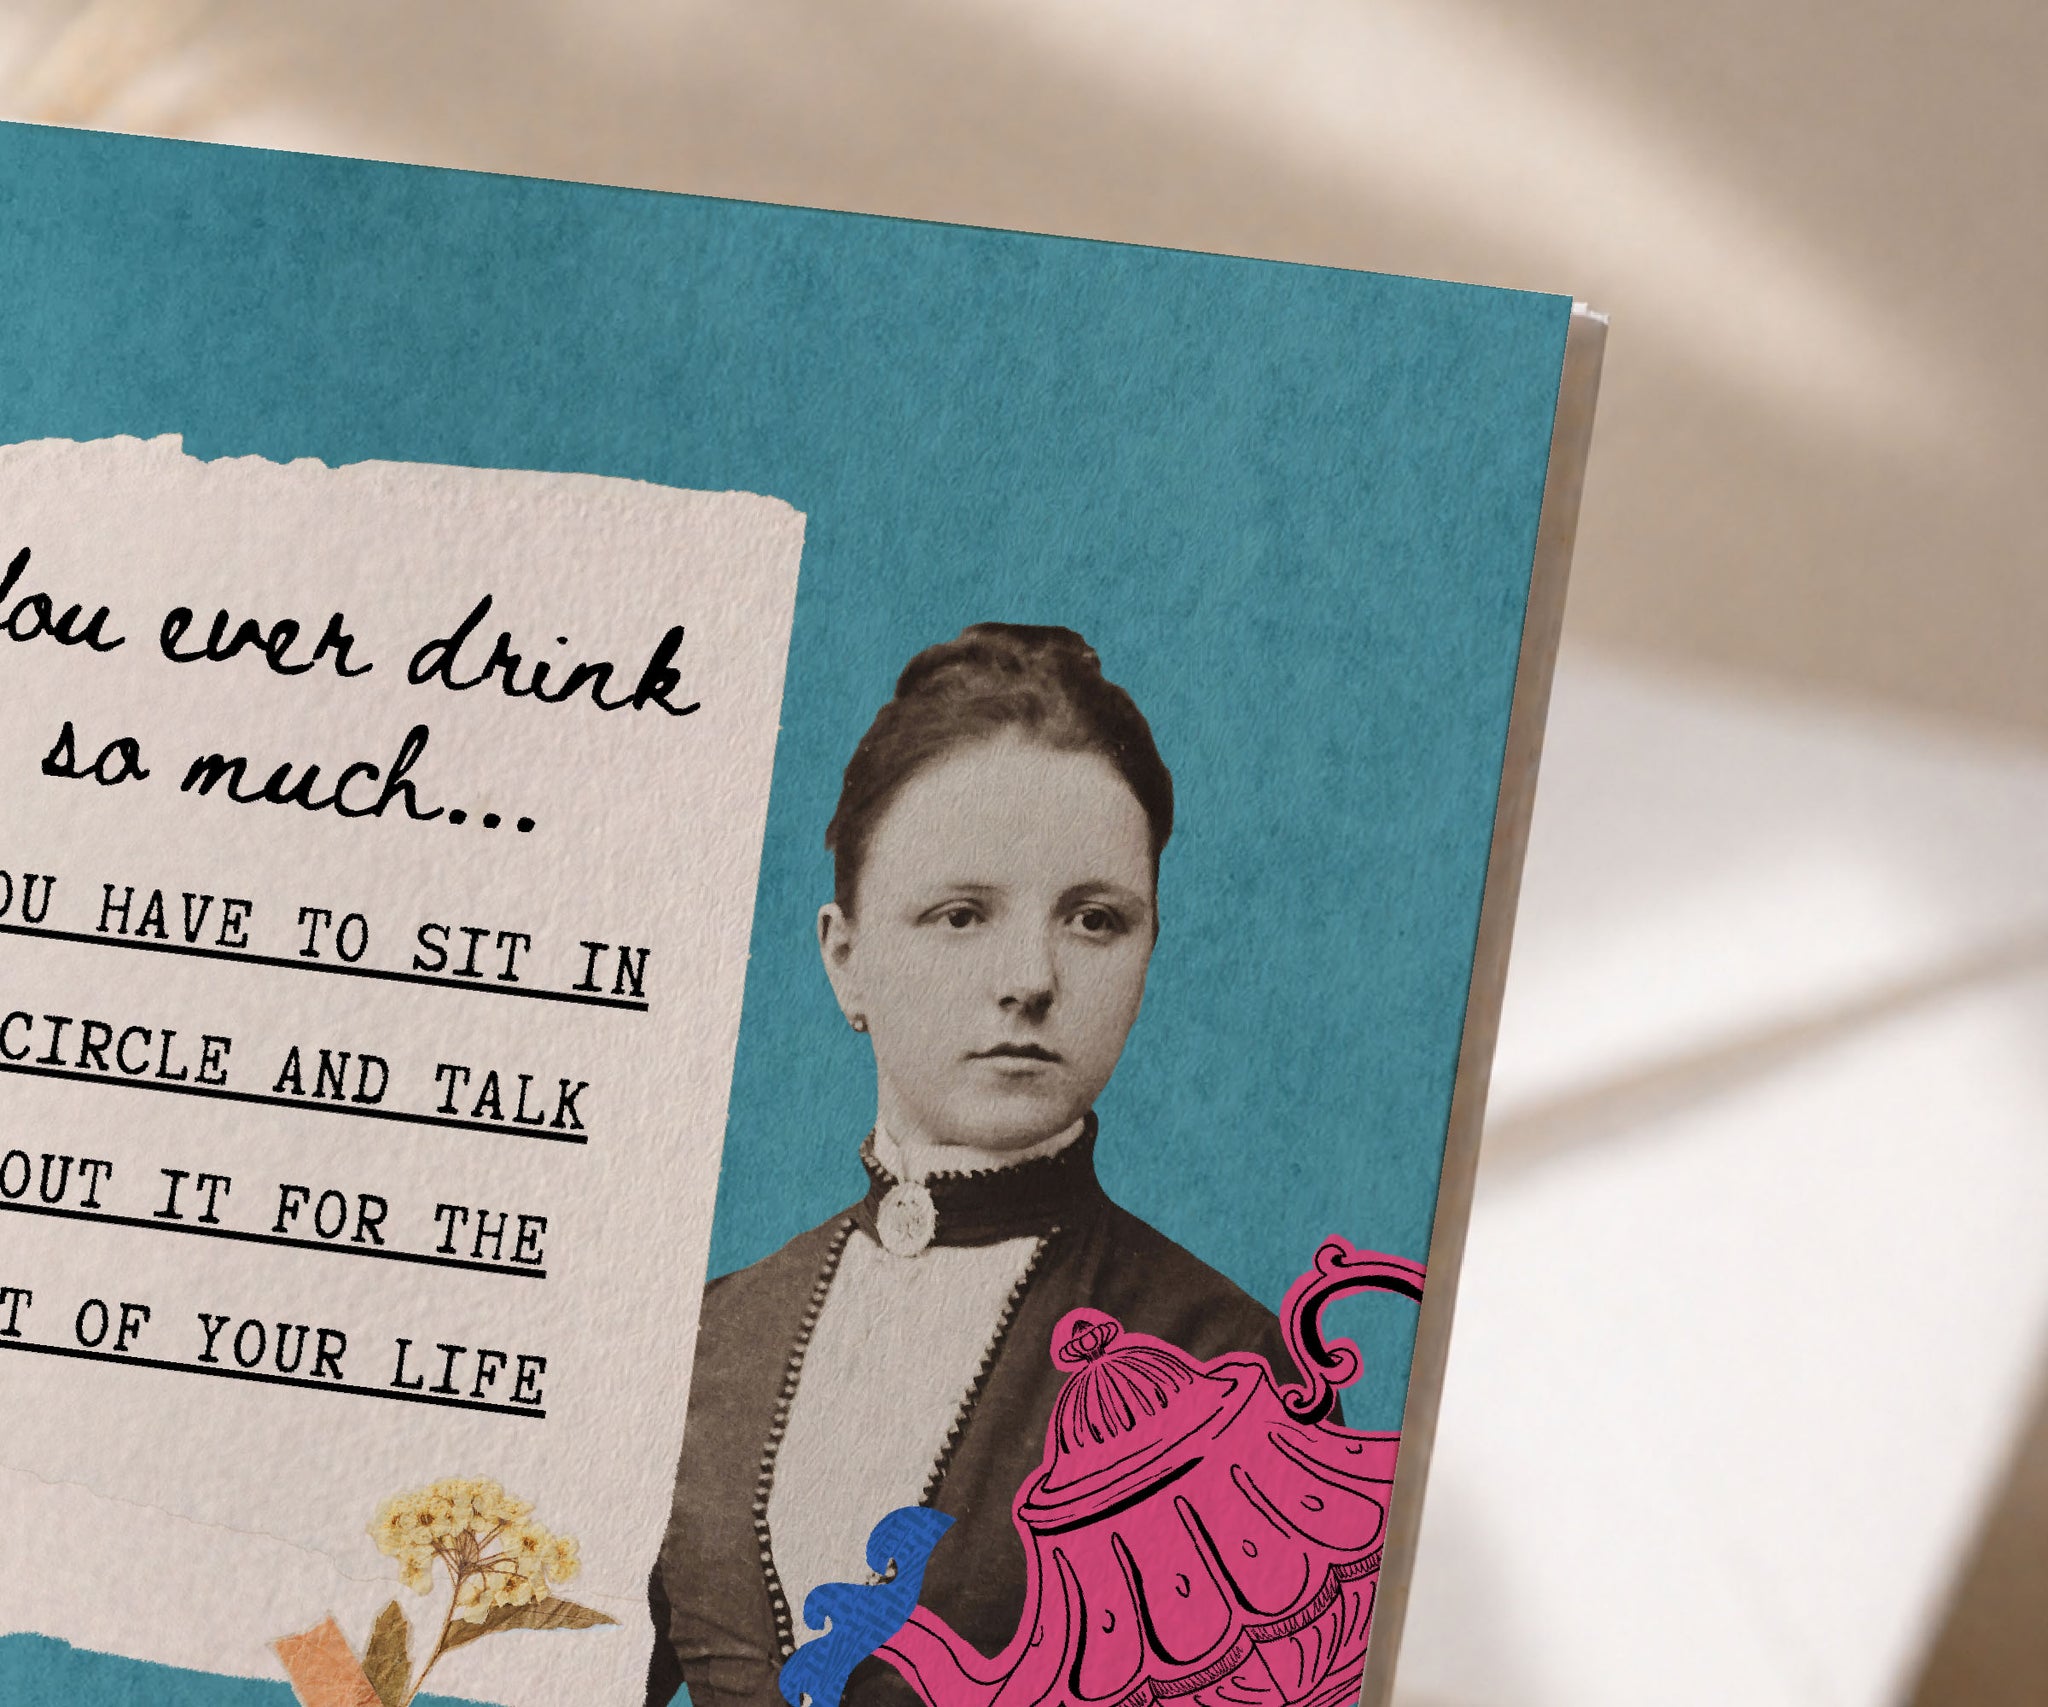 You ever drink
so much...
OU HAVE TO SIT IN
CIRCLE AND TALK
OUT IT FOR THE
T OF YOUR LIFE